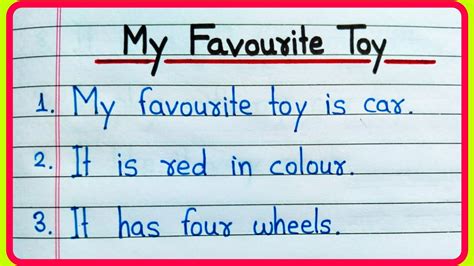 My Favourite Toy
1. My favourite toy is car.
2. It is red in colour.
3. It has four wheels.